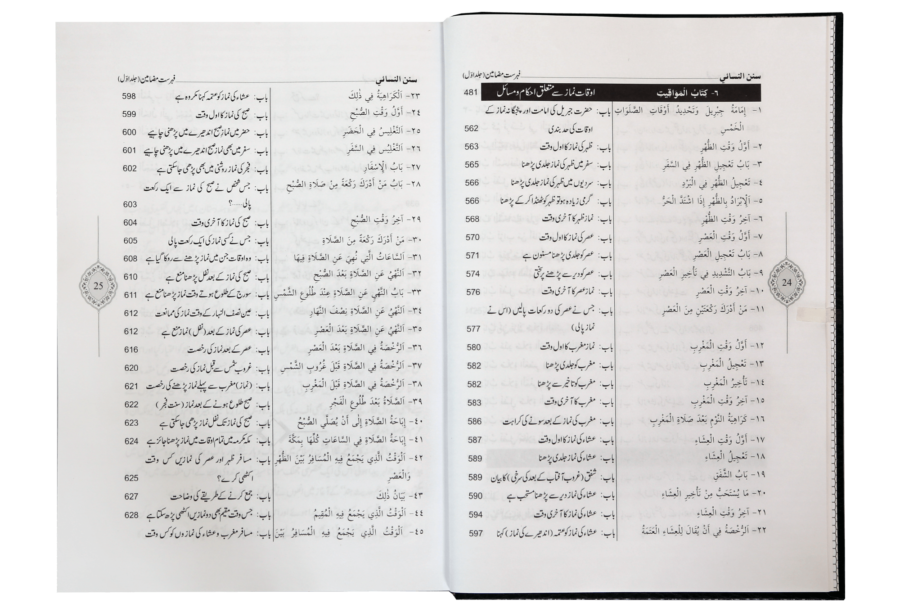 سنن النسائي فہرست مضامین (جلد اوّل)
٦- كتاب المواقيت اوقات نماز سے متعلق احکام و مسائل 481
١- إِمَامَةُ جِبْرِيلَ وَتَحْدِيدُ أَوْقَاتِ الصَّلَوَاتِ باب: حضرت جبریل کی امامت اور پنجگانہ نماز کے
الْخَمْسِ اوقات کی حد بندی 562
٢- أَوَّلُ وَقْتِ الظُّهْرِ باب: ظہر کی نماز کا اول وقت 563
٣- بَابُ تَعْجِيلِ الظُّهْرِ فِي السَّفَرِ باب: سفر میں ظہر کی نماز جلدی پڑھنا 565
٤- تَعْجِيلُ الظُّهْرِ فِي الْبَرْدِ باب: سردیوں میں ظہر کی نماز جلدی پڑھنا 566
٥- اَلْإِبْرَادُ بِالظُّهْرِ إِذَا اشْتَدَّ الْحَرُّ باب: گرمی زیادہ ہو تو ظہر کو ٹھنڈا کر کے پڑھنا 566
٦- آخِرُ وَقْتِ الظُّهْرِ باب: نماز ظہر کا آخری وقت 568
٧- أَوَّلُ وَقْتِ الْعَصْرِ باب: عصر کی نماز کا اول وقت 570
٨- بَابُ تَعْجِيلِ الْعَصْرِ باب: عصر کو جلدی پڑھنا مسنون ہے 571
٩- بَابُ التَّشْدِيدِ فِي تَأْخِيرِ الْعَصْرِ باب: عصر کو دیر سے پڑھنے پر سختی 574
١٠- آخِرُ وَقْتِ الْعَصْرِ باب: نماز عصر کا آخری وقت 576
١١- مَنْ أَدْرَكَ رَكْعَتَيْنِ مِنَ الْعَصْرِ باب: جس نے عصر کی دو رکعات پالیں (اس نے
نماز پالی) 577
١٢- أَوَّلُ وَقْتِ الْمَغْرِبِ باب: نماز مغرب کا اول وقت 580
١٣- تَعْجِيلُ الْمَغْرِبِ باب: مغرب کو جلدی پڑھنا 582
١٤- تَأْخِيرُ الْمَغْرِبِ باب: مغرب کو تاخیر سے پڑھنا 582
١٥- آخِرُ وَقْتِ الْمَغْرِبِ باب: مغرب کا آخری وقت 583
١٦- كَرَاهِيَةُ النَّوْمِ بَعْدَ صَلَاةِ الْمَغْرِبِ باب: مغرب کی نماز کے بعد سونے کی کراہت 586
١٧- أَوَّلُ وَقْتِ الْعِشَاءِ باب: عشاء کی نماز کا اول وقت 587
١٨- تَعْجِيلُ الْعِشَاءِ باب: عشاء کی نماز جلدی پڑھنا 589
١٩- بَابُ الشَّفَقِ باب: شفق (غروب آفتاب کے بعد کی سرخی) کا بیان 589
٢٠- مَا يُسْتَحَبُّ مِنْ تَأْخِيرِ الْعِشَاءِ باب: عشاء کی نماز دیر سے پڑھنا مستحب ہے 590
٢١- آخِرُ وَقْتِ الْعِشَاءِ باب: عشاء کی نماز کا آخری وقت 594
٢٢- اَلرُّخْصَةُ فِي أَنْ يُقَالَ لِلْعِشَاءِ الْعَتَمَةُ باب: عشاء کی نماز کو عتمہ (اندھیرے کی نماز) کہنا 597
24
سنن النسائي فہرست مضامین (جلد اوّل)
٢٣- اَلْكَرَاهِيَةُ فِي ذٰلِكَ باب: عشاء کی نماز کو عتمہ کہنا مکروہ ہے 598
٢٤- أَوَّلُ وَقْتِ الصُّبْحِ باب: صبح کی نماز کا اول وقت 599
٢٥- اَلتَّغْلِيسُ فِي الْحَضَرِ باب: حضر میں نماز صبح اندھیرے میں پڑھنی چاہیے 600
٢٦- اَلتَّغْلِيسُ فِي السَّفَرِ باب: سفر میں بھی نماز صبح اندھیرے میں پڑھنی چاہیے 601
٢٧- بَابُ الْإِسْفَارِ باب: فجر کی نماز روشنی میں بھی پڑھی جا سکتی ہے 602
٢٨- بَابُ مَنْ أَدْرَكَ رَكْعَةً مِنْ صَلَاةِ الصُّبْحِ باب: جس شخص نے صبح کی نماز سے ایک رکعت
پالی—؟ 603
٢٩- آخِرُ وَقْتِ الصُّبْحِ باب: صبح کی نماز کا آخری وقت 604
٣٠- مَنْ أَدْرَكَ رَكْعَةً مِنَ الصَّلَاةِ باب: جس نے کسی نماز کی ایک رکعت پالی 605
٣١- اَلسَّاعَاتُ الَّتِي نُهِيَ عَنِ الصَّلَاةِ فِيهَا باب: وہ اوقات جن میں نماز پڑھنے سے روکا گیا ہے 608
٣٢- اَلنَّهْيُ عَنِ الصَّلَاةِ بَعْدَ الصُّبْحِ باب: صبح کی نماز کے بعد نفل پڑھنا منع ہے 610
٣٣- بَابُ النَّهْيِ عَنِ الصَّلَاةِ عِنْدَ طُلُوعِ الشَّمْسِ باب: سورج کے طلوع ہوتے وقت نماز پڑھنا منع ہے 611
٣٤- اَلنَّهْيُ عَنِ الصَّلَاةِ نِصْفَ النَّهَارِ باب: عین نصف النہار کے وقت نماز کی ممانعت 612
٣٥- اَلنَّهْيُ عَنِ الصَّلَاةِ بَعْدَ الْعَصْرِ باب: عصر کی نماز کے بعد (نفل) نماز منع ہے 612
٣٦- اَلرُّخْصَةُ فِي الصَّلَاةِ بَعْدَ الْعَصْرِ باب: عصر کے بعد نماز کی رخصت 616
٣٧- اَلرُّخْصَةُ فِي الصَّلَاةِ قَبْلَ غُرُوبِ الشَّمْسِ باب: غروب شمس سے قبل نماز کی رخصت 620
٣٨- اَلرُّخْصَةُ فِي الصَّلَاةِ قَبْلَ الْمَغْرِبِ باب: (نماز) مغرب سے پہلے نماز پڑھنے کی رخصت 621
٣٩- اَلصَّلَاةُ بَعْدَ طُلُوعِ الْفَجْرِ باب: صبح طلوع ہونے کے بعد نماز (سنت فجر) 622
٤٠- إِبَاحَةُ الصَّلَاةِ إِلَى أَنْ يُصَلِّيَ الصُّبْحَ باب: صبح کی نماز تک نفل پڑھی جا سکتی ہے 623
٤١- إِبَاحَةُ الصَّلَاةِ فِي السَّاعَاتِ كُلِّهَا بِمَكَّةَ باب: مکہ مکرمہ میں تمام اوقات میں نماز پڑھنا جائز ہے 624
٤٢- اَلْوَقْتُ الَّذِي يَجْمَعُ فِيهِ الْمُسَافِرُ بَيْنَ الظُّهْرِ باب: مسافر ظہر اور عصر کی نمازیں کس وقت
وَالْعَصْرِ اکٹھی کرے؟ 625
٤٣- بَيَانُ ذٰلِكَ باب: جمع کرنے کے طریقے کی وضاحت 627
٤٤- اَلْوَقْتُ الَّذِي يَجْمَعُ فِيهِ الْمُقِيمُ باب: جس وقت مقیم بھی دو نمازیں اکٹھی پڑھ سکتا ہے 628
٤٥- اَلْوَقْتُ الَّذِي يَجْمَعُ فِيهِ الْمُسَافِرُ بَيْنَ باب: مسافر مغرب و عشاء کی نمازوں کو کس وقت
25